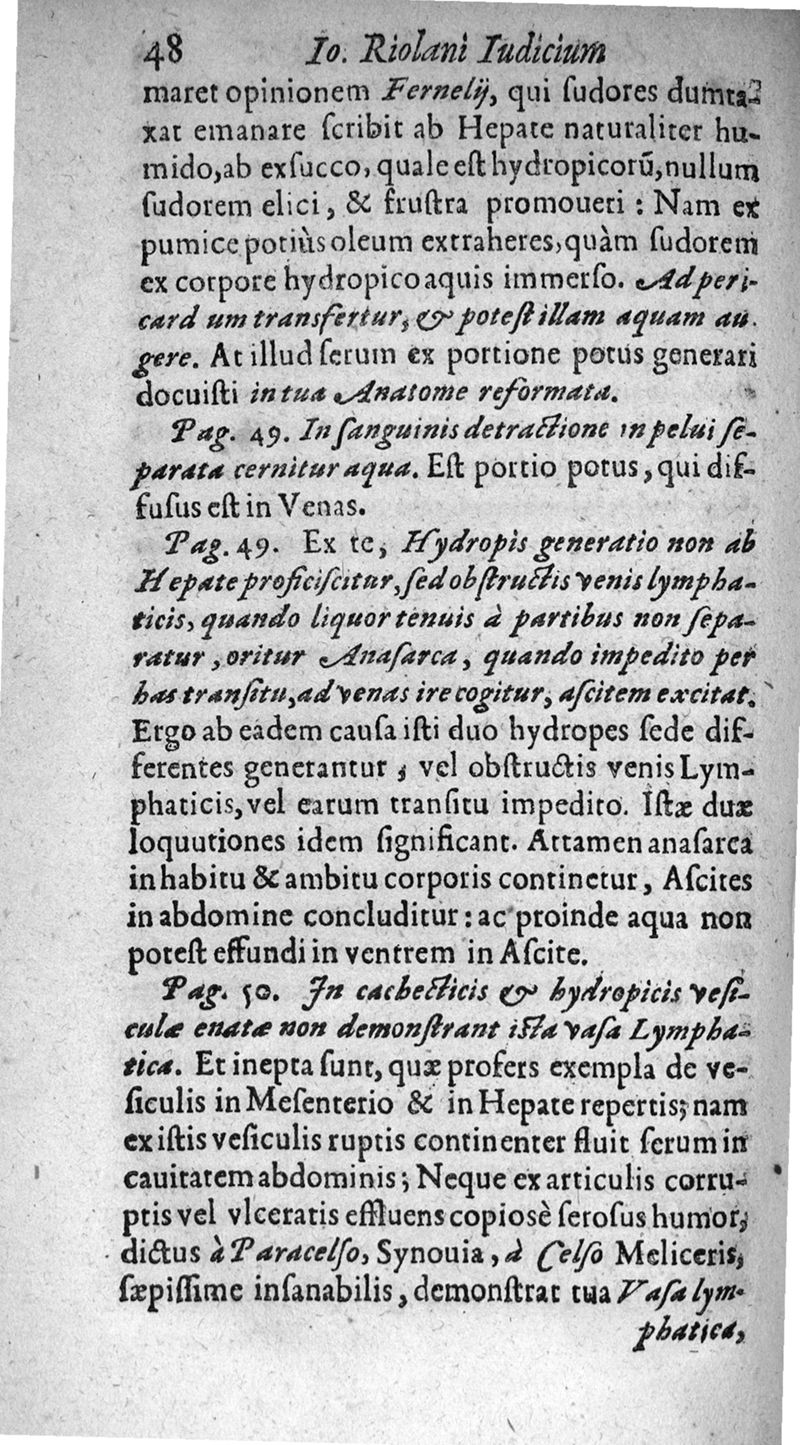 48 Io. Riolani Iudicium
maret opinionem Fernelij, qui ſudores dumta-
xat emanare ſcribit ab Hepate naturaliter hu-
mido, ab exſucco, quale eſt hydropicorũ, nullum
ſudorem elici, & fruſtra promoueri : Nam ex
pumice potiùs oleum extraheres, quàm ſudorem
ex corpore hydropico aquis immerſo. Ad peri-
card um transfertur, & poteſt illam aquam au
gere. At illud ſerum ex portione potus generari
docuiſti in tua Anatome reformata.
Pag. 49. In ſanguinis detractione in pelui ſe-
parata cernitur aqua. Eſt portio potus, qui dif-
fuſus eſt in Venas.
Pag. 49. Ex te, Hydropis generatio non ab
Hepate proficiſcitur, ſed obſtructis venis lympha-
ticis, quando liquor tenuis à partibus non ſepa-
ratur, oritur Anaſarca, quando impedito per
has tranſitu, ad venas ire cogitur, aſcitem excitat.
Ergo ab eadem cauſa iſti duo hydropes ſede dif-
ferentes generantur, vel obſtructis venis Lym-
phaticis, vel earum tranſitu impedito. Iſtæ duæ
loquutiones idem ſignificant. Attamen anaſarca
in habitu & ambitu corporis continetur, Aſcites
in abdomine concluditur : ac proinde aqua non
poteſt effundi in ventrem in Aſcite.
Pag. 50. In cachecticis & hydropicis veſi-
culæ enatæ non demonſtrant iſta vaſa Lympha-
tica. Et inepta ſunt, quæ profers exempla de ve-
ſiculis in Meſenterio & in Hepate repertis; nam
ex iſtis veſiculis ruptis continenter fluit ſerum in
cauitatem abdominis; Neque ex articulis corru-
ptis vel vlceratis effluens copiosè ſeroſus humor,
dictus à Paracelſo, Synouia, à Celſo Meliceris,
ſæpiſſime inſanabilis, demonſtrat tua Vaſa lym-
phatica,